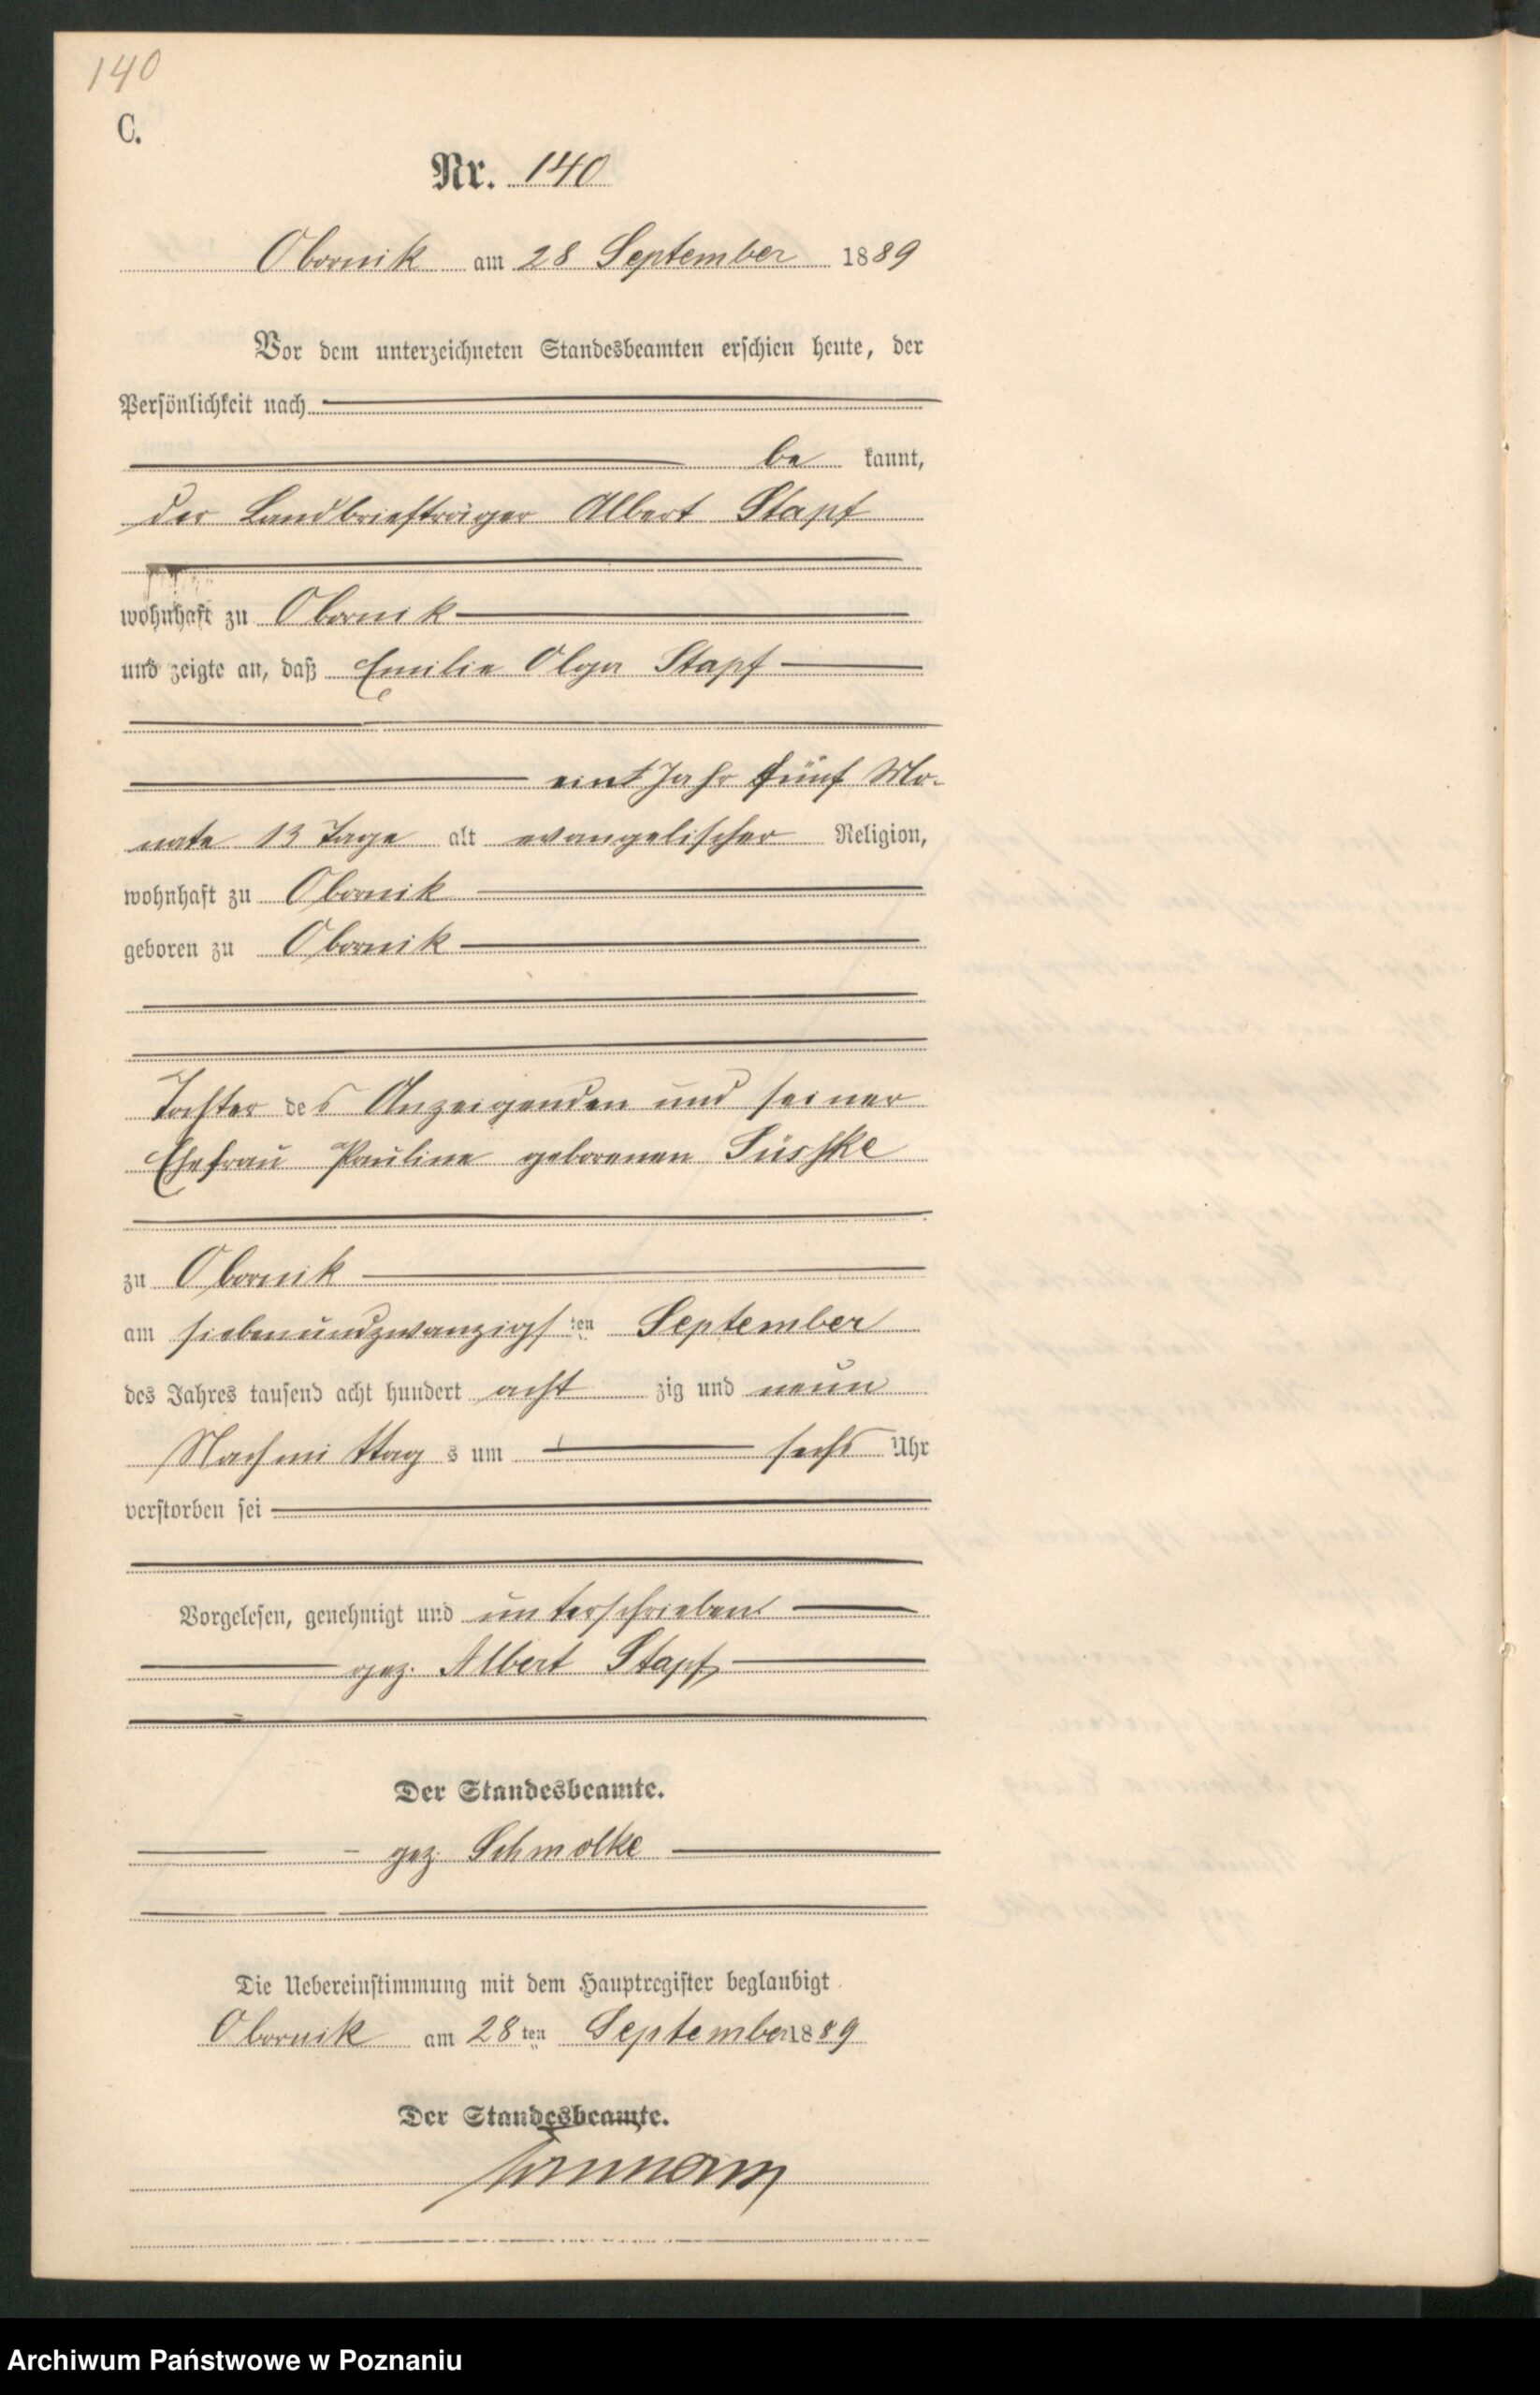 140
C.
Nr. 140
Obornik am 28 September 1889
Vor dem unterzeichneten Standesbeamten erschien heute, der
Persönlichkeit nach
be kannt,
der Landbriefträger Albert Stapf
wohnhaft zu Obornik
und zeigte an, daß Emilie Olga Stapf
ein Jahr fünf Mo-
nate 13 Tage alt evangelischer Religion,
wohnhaft zu Obornik
geboren zu Obornik
Tochter des Anzeigenden und seiner
Ehefrau Pauline geborenen
zu Obornik
am siebenundzwanzigsten September
des Jahres tausend acht hundert acht zig und neun
Nachmittags um sechs Uhr
verstorben sei
Vorgelesen, genehmigt und unterschrieben
gez. Albert Stapf
Der Standesbeamte.
gez. Schmolke
Die Uebereinstimmung mit dem Hauptregister beglaubigt
Obornik am 28ten September 1889
Der Standesbeamte.
Archiwum Państwowe w Poznaniu